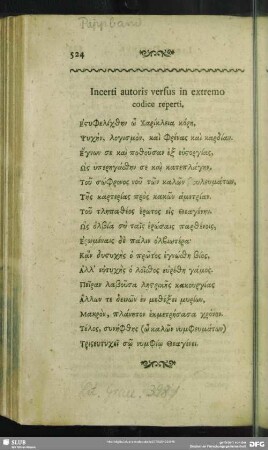 524
Incerti autoris versus in extremo
codice reperti.
Ἐτυφελίχθην ὦ Χαρίκλεια κόρη,
Ψυχὴν, λογισμὸν, καὶ φρένας καὶ καρδίαν.
Ἔγνων σε καὶ ποθοῦσαν ἐξ εὐστοργίας,
Ὡς ὑπερηγάσθην σε καὶ κατεπλάγην,
Τοῦ σώφρονος νοῦ τῶν καλῶν βουλευμάτων,
Τῆς καρτερίας πρὸς κακῶν ἀμετρίαν.
Τοῦ τληπαθοῦς ἔρωτος εἰς Θεαγένην.
Ὡς ὀλβία σὺ ταῖς ἐρώσαις παρθένοις,
Ἐρωμέναις δὲ πάλιν ὀλβιωτέρα·
Κἂν δυστυχὴς ὁ πρῶτος ἐγνώσθη βίος,
Ἀλλ' εὐτυχὴς ὁ λοῖσθος εὑρέθη γάμος.
Πεῖραν λαβοῦσα λῃστρικῆς κακουργίας
Ἄλλων τε δεινῶν ἐν μεθέξει μυρίων,
Μακρὸν, πλάνητον ἐκμετρήσασα χρόνον.
Τέλος, συνήφθης (ὦ καλῶν νυμφευμάτων)
Τρισευτυχεῖ σῷ νυμφίῳ Θεαγένει.
SLUB
DFG